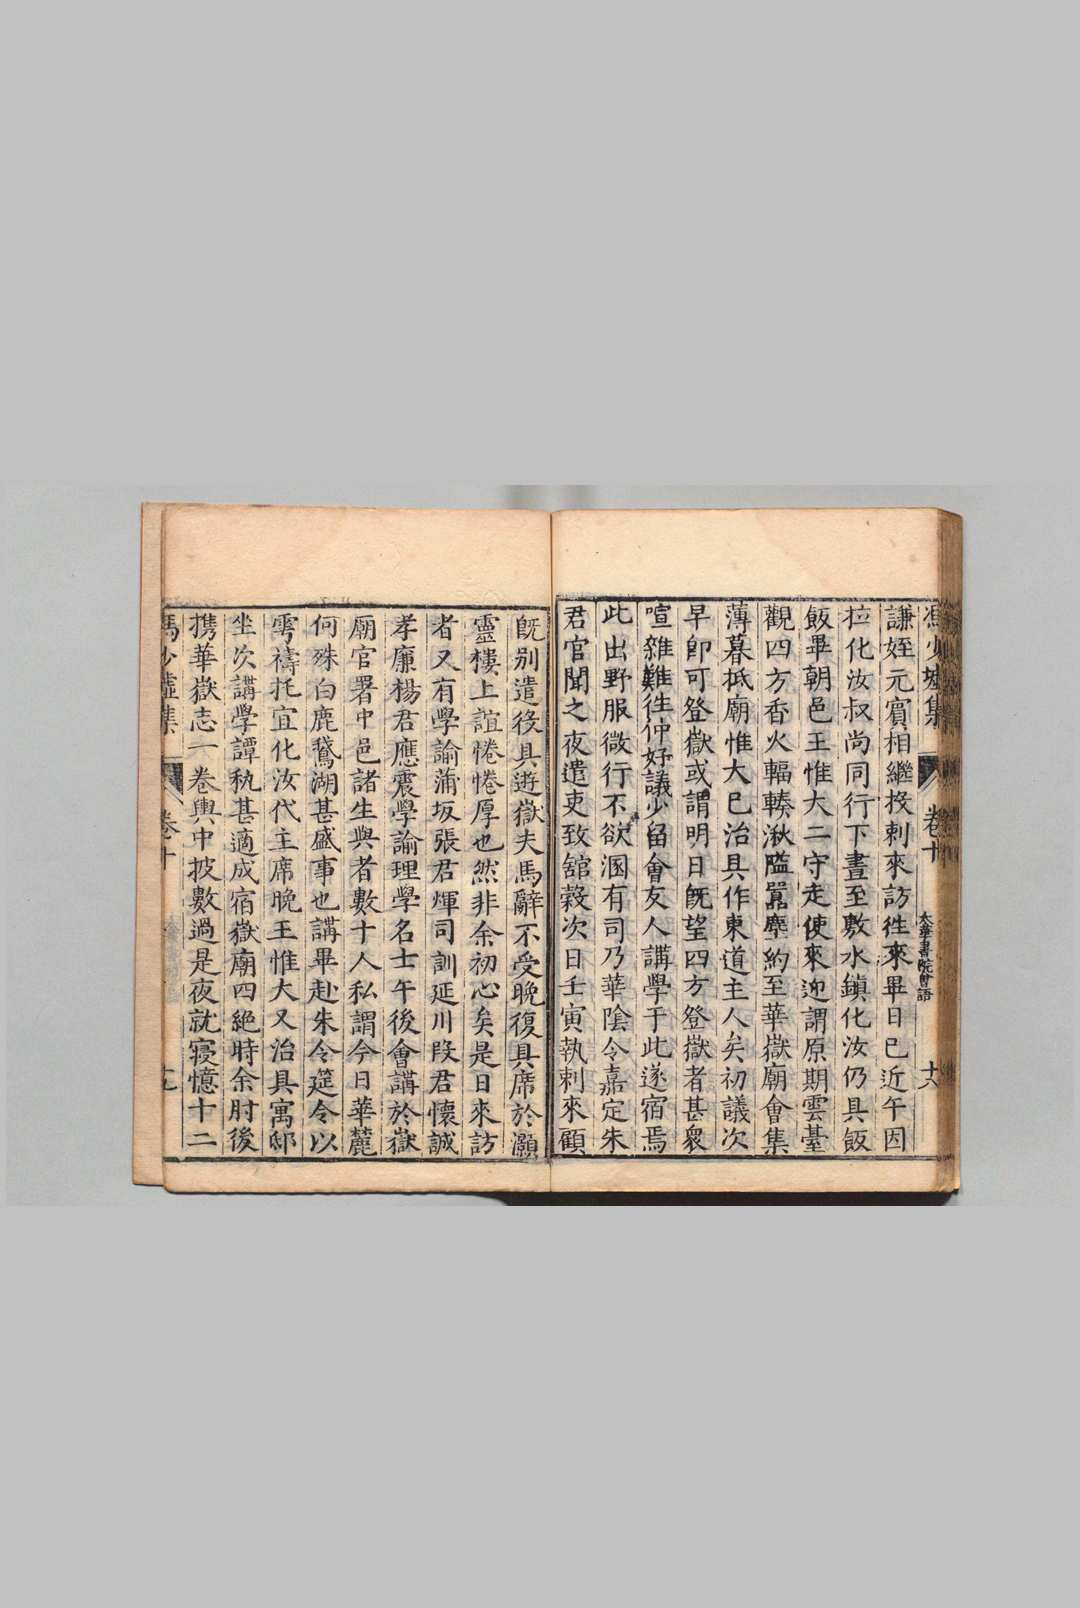 馮少墟集 卷十 太華書院會語 十八
謙姪元賓相繼投刺來訪徃來畢日已近午因
拉化汝叔尚同行下晝至敷水鎮化汝仍具飯
飯畢朝邑王惟大二守走使來迎謂原期雲臺
觀四方香火輻輳湫隘囂塵約至華嶽廟會集
薄暮抵廟惟大已治具作東道主人矣初議次
早卽可登嶽或謂明日旣望四方登嶽者甚衆
喧雜難徃仲好議少留會友人講學于此遂宿焉
此出野服微行不欲溷有司乃華隂令嘉定朱
君官聞之夜遣吏致舘穀次日壬寅執刺來顧
旣别遣役具遊嶽夫馬辭不受晚復具席於灝
靈樓上誼惓惓厚也然非余初心矣是日來訪
者又有學諭蒲坂張君煇司訓延川叚君懷誠
孝廉楊君應震學諭理學名士午後會講於嶽
廟官署中邑諸生與者數十人私謂今日華麓
何殊白鹿鵞湖甚盛事也講畢赴朱令筵令以
雩禱托宜化汝代主席晚王惟大又治具寓邸
坐次講學譚秇甚適成宿嶽廟四絶時余肘後
携華嶽志一卷輿中披數過是夜就寢憶十二
馮少墟集 卷十